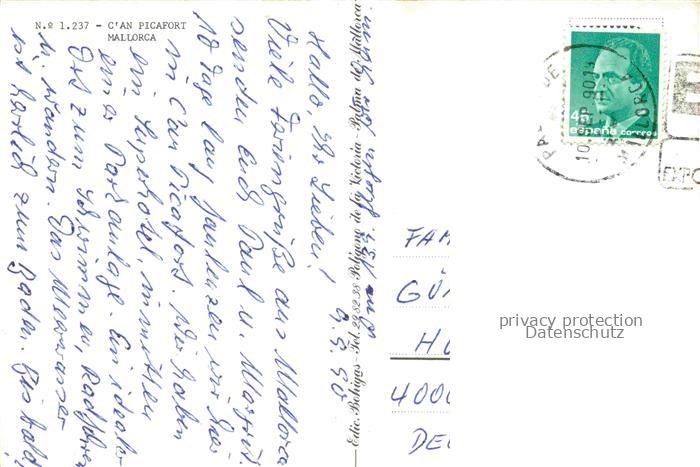 N.º 1.237 - C'AN PICAFORT
MALLORCA
9.9.90
Hallo, Ihr Lieben!
Viele Feriengrüße aus Mallorca
senden Euch Paul u. Margrit.
10 Tage lang faulenzen wir hier
in C'an Picafort. Wir haben
ein Superhotel, inmitten
einer Parkanlage. Ein idealer
Ort zum Schwimmen, Radfahren
u. Wandern. Das Meerwasser
ist herrlich zum Baden. Bis bald,
Edic. Bohigas - Tel. 22 82 38 Polígono de la Victoria - Palma de Mallorca
PALMA DE
MALLORCA
10 SEP 90
45
españa correos
EXPO
FAM
GÜ
H
4000
DE
privacy protection
Datenschutz